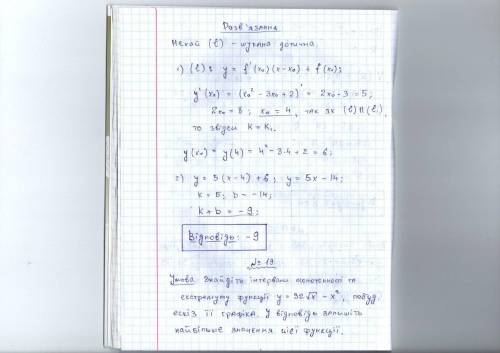 Розв'язання
Нехай (l) - шукана дотична.
1) (l): y = f'(x₀)(x-x₀) + f(x₀);
y'(x₀) = (x₀² - 3x₀ + 2)' = 2x₀ - 3 = 5;
2x₀ = 8; x₀ = 4, так як (l) || (l₁),
то звідси k = k₁.
y(x₀) = y(4) = 4² - 3·4 + 2 = 6;
2) y = 5(x-4) + 6; y = 5x - 14;
k = 5; b = -14;
k + b = -9;
Відповідь: -9
№ 19
Умова: Знайдіть інтервали монотонності та
екстремуму функції y = 32√x - x², побуд
ескіз її графіка. У відповідь запишіть
найбільше значення цієї функції.